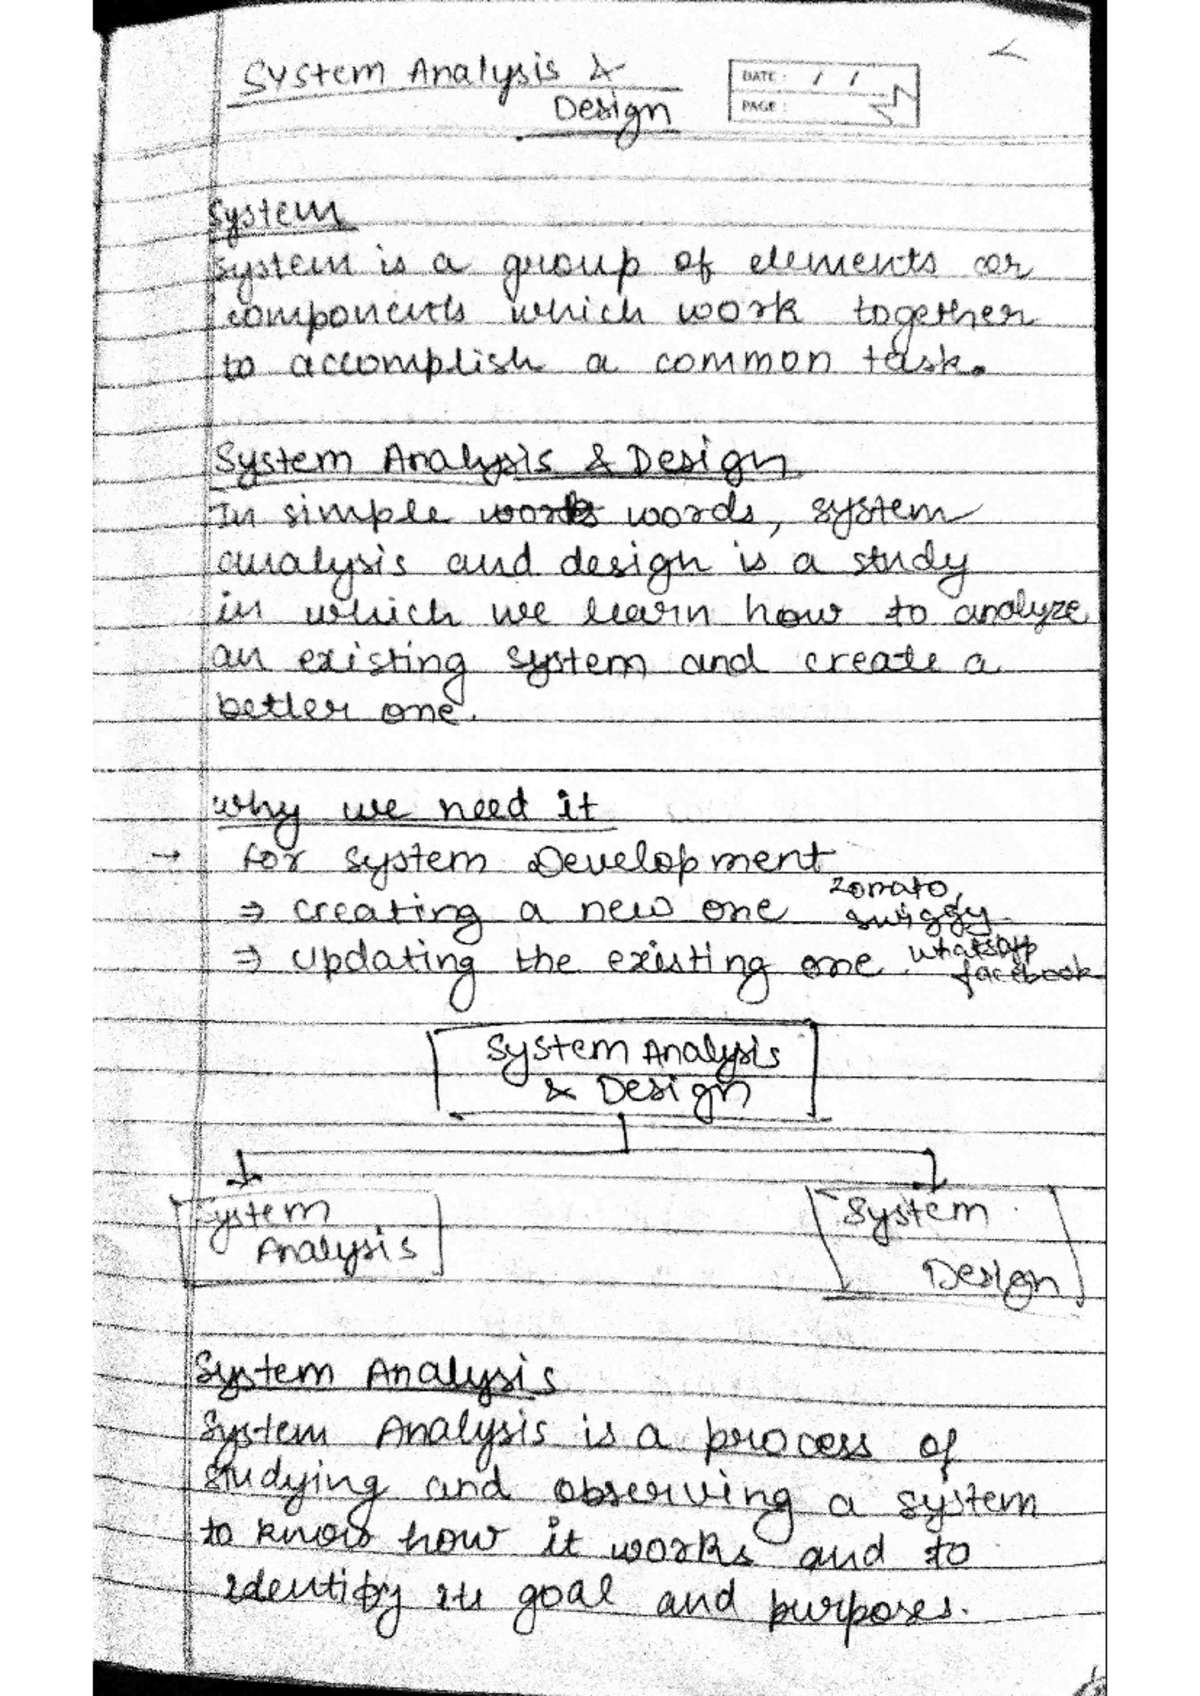 System Analysis &
Design
DATE : / /
PAGE :
System
System is a group of elements or
components which work together
to accomplish a common task.
System Analysis & Design
In simple words, system
analysis and design is a study
in which we learn how to analyze
an existing system and create a
better one.
Why we need it
→ for System Development
⇒ creating a new one zomato,
swiggy.
⇒ updating the existing one. whatsapp
facebook
System Analysis
& Design
System
Analysis
System
Design
System Analysis
System Analysis is a process of
studying and observing a system
to know how it works and to
identify its goal and purposes.